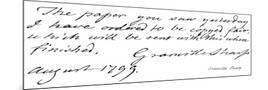 The paper you saw yesterday
I have ordered to be copied fair,
which will be sent with this when
finished. Granville Sharp
August 1799.
Granville Sharp